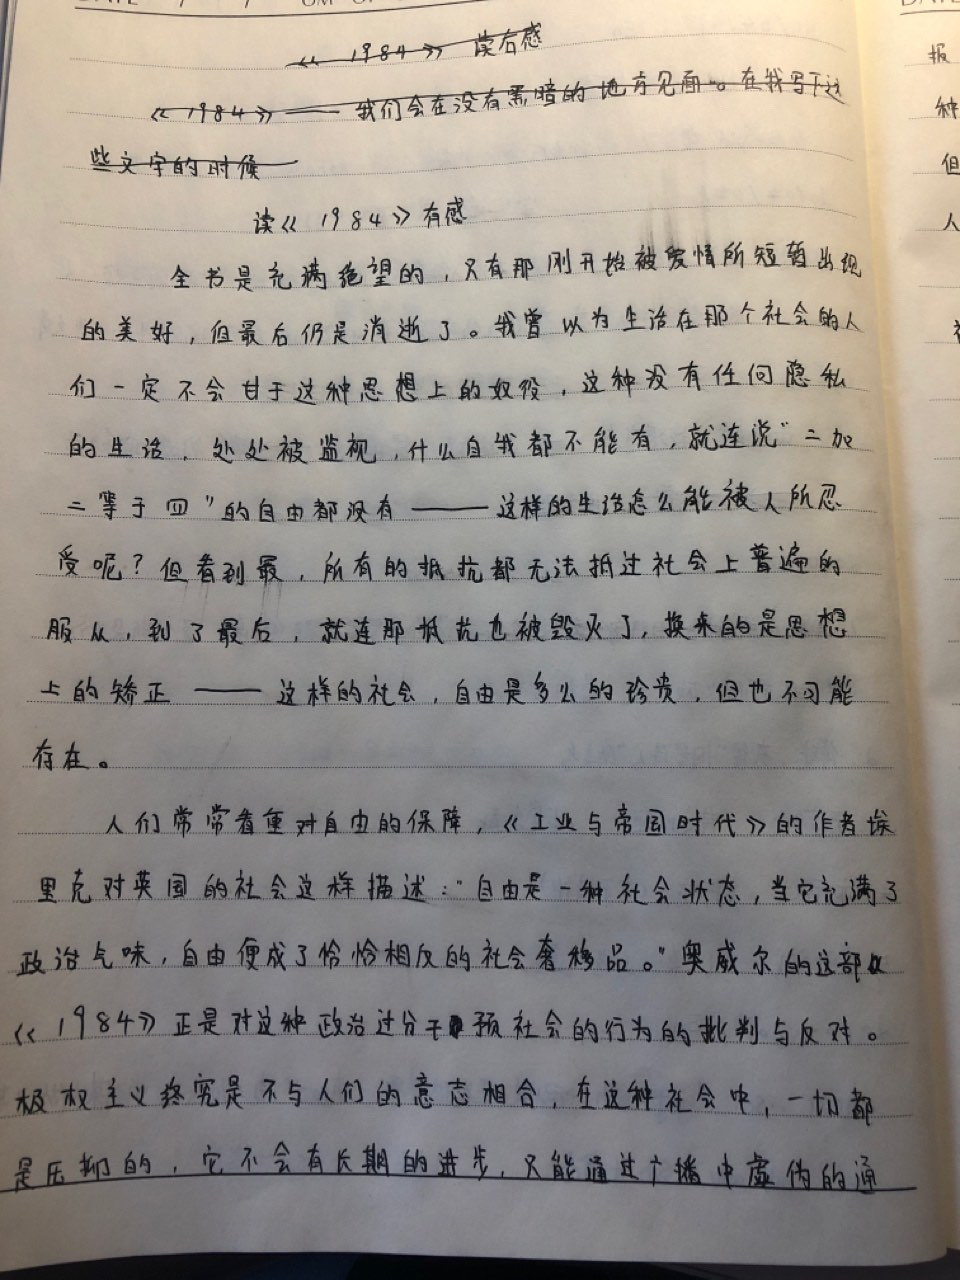 《1984》读后感
《1984》——我们会在没有黑暗的地方见面。在我写下这
些文字的时候
读《1984》有感
全书是充满绝望的，只有那刚开始被爱情所短暂出现
的美好，但最后仍是消逝了。我曾以为生活在那个社会的人
们一定不会甘于这种思想上的奴役，这种没有任何隐私
的生活，处处被监视，什么自我都不能有，就连说"二加
二等于四"的自由都没有——这样的生活怎么能被人所忍
受呢？但看到最，所有的抵抗都无法抵过社会上普遍的
服从，到了最后，就连那抵抗也被毁灭了，换来的是思想
上的矫正——这样的社会，自由是多么的珍贵，但也不可能
存在。
人们常常看重对自由的保障，《工业与帝国时代》的作者埃
里克对英国的社会这样描述："自由是一种社会状态，当它充满了
政治气味，自由便成了恰恰相反的社会奢移品。"奥威尔的这部
《1984》正是对这种政治过分干预社会的行为的批判与反对。
极权主义终究是不与人们的意志相合，在这种社会中，一切都
是压抑的，它不会有长期的进步，只能通过广播中虚伪的通
报
种
但
人